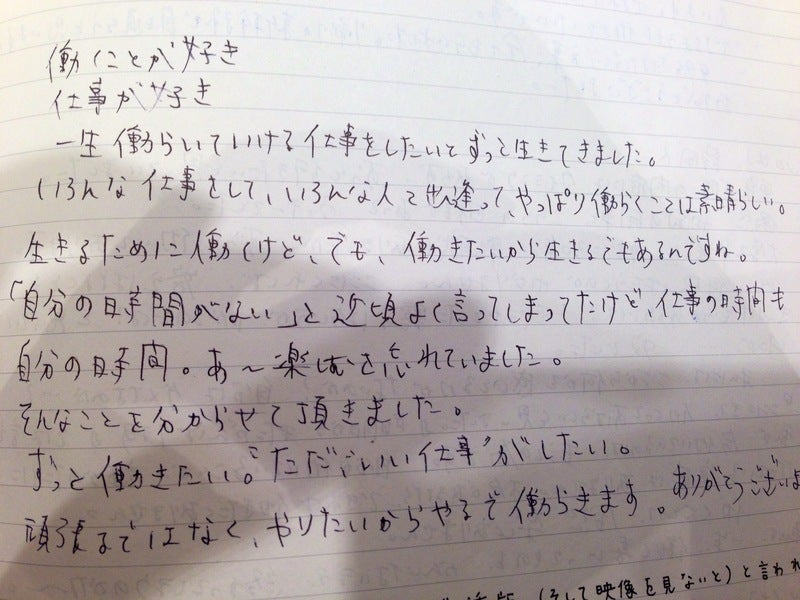 働くことが好き
仕事が好き
一生働らいていける仕事をしたいとずっと生きてきました。
いろんな仕事をして、いろんな人と出逢って、やっぱり働らくことは素晴らしい。
生きるために働くけど、でも、働きたいから生きるでもあるんですね。
「自分の時間がない」と近頃よく言ってしまってたけど、仕事の時間も
自分の時間。あ〜楽しむを忘れていました。
そんなことを分からせて頂きました。
ずっと働きたい。"ただ、いい仕事"がしたい。
頑張るではなく、やりたいからやるで働らきます。ありがとうござい
(そして映像を見ないと)と言われ